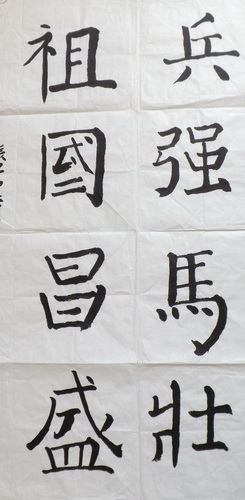 兵强馬壯
祖國昌盛